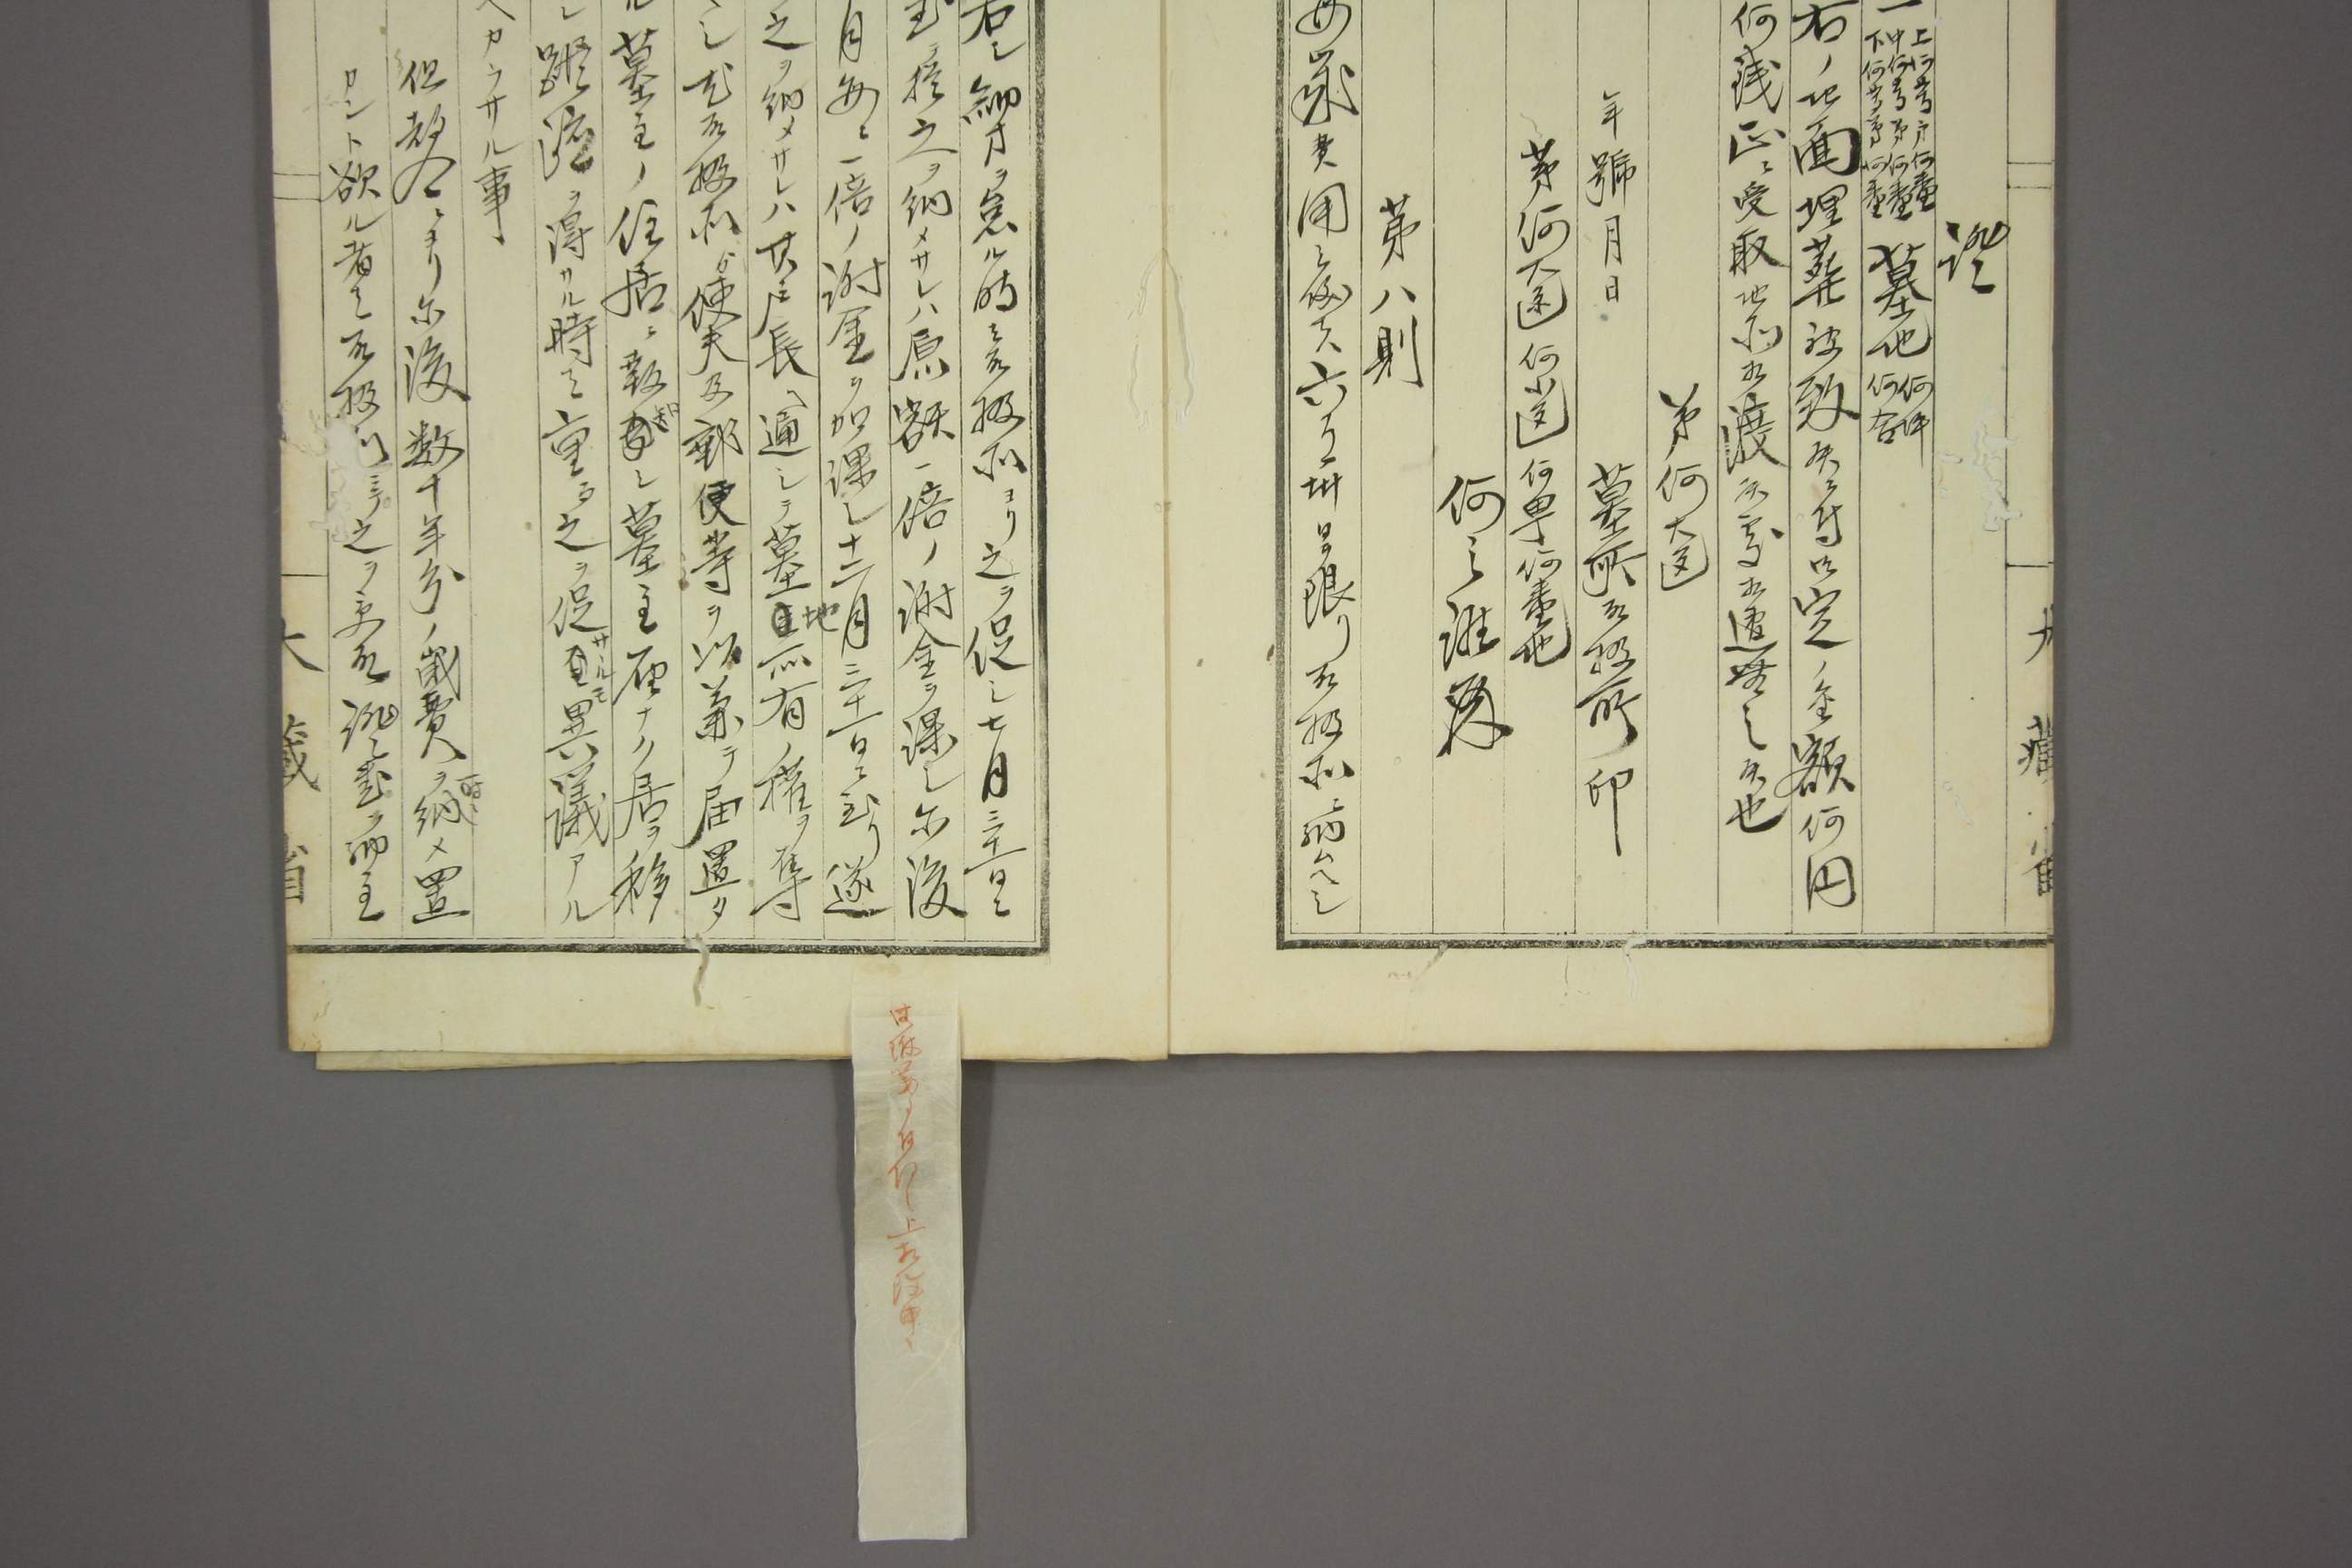 證
一 上何等第何番 中何等第何番 下何等第何番 墓地 何坪何合
右ノ地面埋葬被致度ニ付御定ノ金額何円
何銭正ニ受取地所相渡候処相違無之候也
第何大区
年號月日 墓所取扱所印
第何大区何小区何町何番地
何之誰殿
第八則
毎歳費用ハ必ス六月卅日限リ取扱所ニ納ムヘシ
若シ納方ヲ怠ル時ハ取扱所ヨリ之ヲ促シ七月三十一日ニ
至リ猶之ヲ納メサレハ原額一倍ノ謝金ヲ課シ尓後
月毎ニ一倍ノ謝金ヲ加課シ十二月三十一日ニ至リ遂
之ヲ納メサレハ其戸長ヘ通シテ墓地所有ノ権ヲ奪
シ尤取扱所ゟ使夫及郵便等ヲ以兼テ届置タ
ル墓主ノ住居ニ報知シ墓主理ナク居ヲ移
シ蹤跡ヲ得サル時ハ重テ之ヲ促サルモ異議アル
ヘカラサル事
但都合ニヨリ尓後数十年分ノ歳費ヲ一時ニ納メ置
カント欲ル者ハ取扱所ニテ之ヲ受取證書ヲ納主
大藏省
大藏省